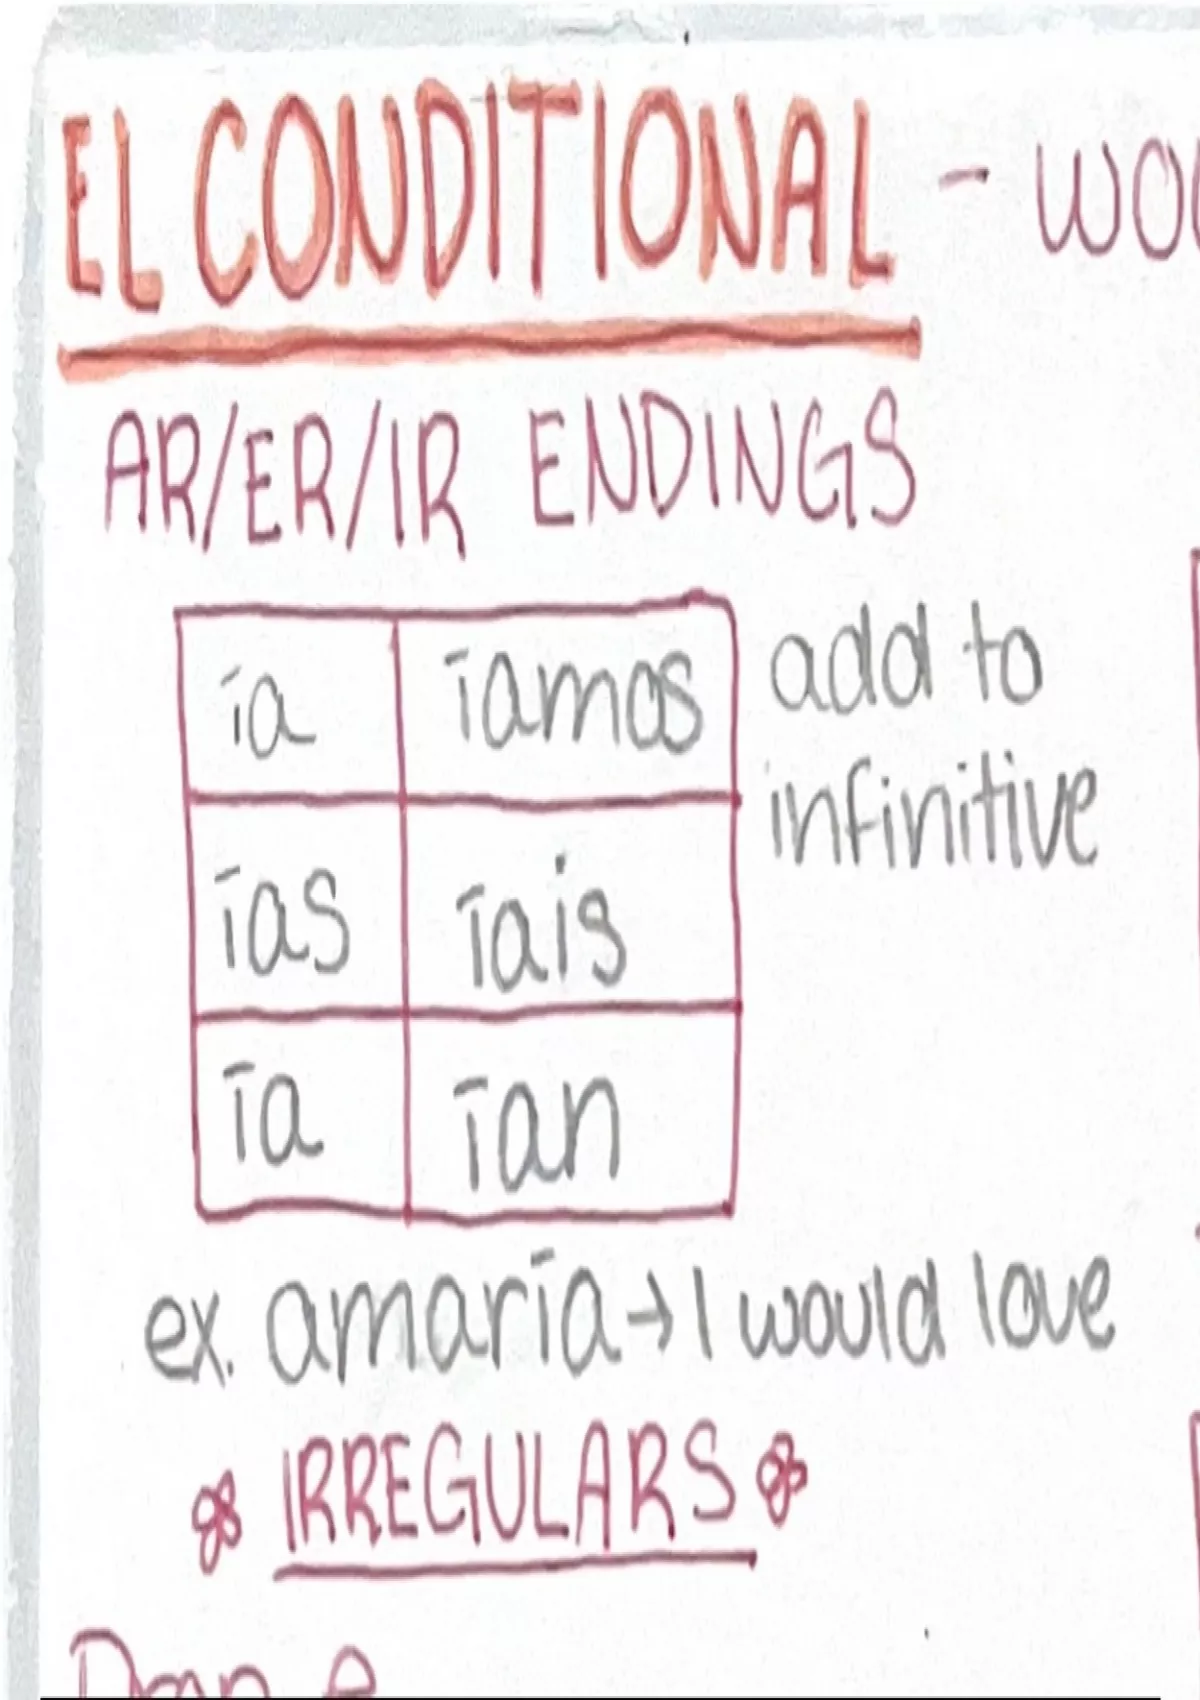 EL CONDITIONAL - WOU
AR/ER/IR ENDINGS
ía íamos
ías íais
ía ían
add to
infinitive
ex. amaría → I would love
IRREGULARS
Drop e